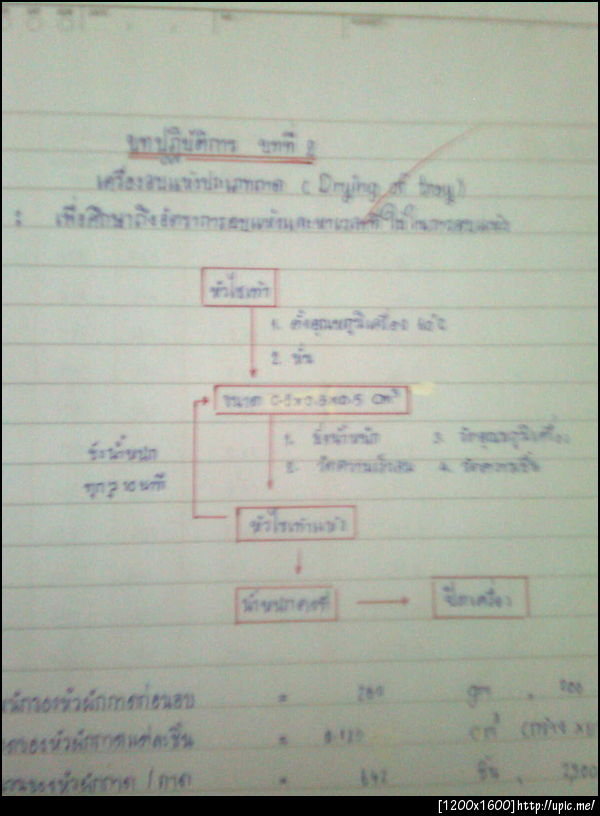 บทปฏิบัติการ บทที่ 2
เครื่องอบแห้งประเภทถาด (Drying of tray)
: เพื่อศึกษาถึงอัตราการอบแห้งและหาเวลาที่ใช้ในการอบแห้ง
หัวไชเท้า
1. ตั้งอุณหภูมิเครื่อง
2. หั่น
ขนาด 0.5x0.5x0.5 cm³
1. ชั่งน้ำหนัก 3. วัดอุณหภูมิเครื่อง
2. วัดความเร็วลม 4. วัดความชื้น
ชั่งน้ำหนัก
ทุกๆ นาที
หัวไชเท้าแห้ง
น้ำหนักคงที่
ปิดเครื่อง
หนักของหัวผักกาดก่อนอบ = 280 gm ,
ของหัวผักกาดแต่ละชิ้น = 0.120 cm³
ของหัวผักกาด / ถาด = 642 ชิ้น ,
[1200x1600]http://upic.me/